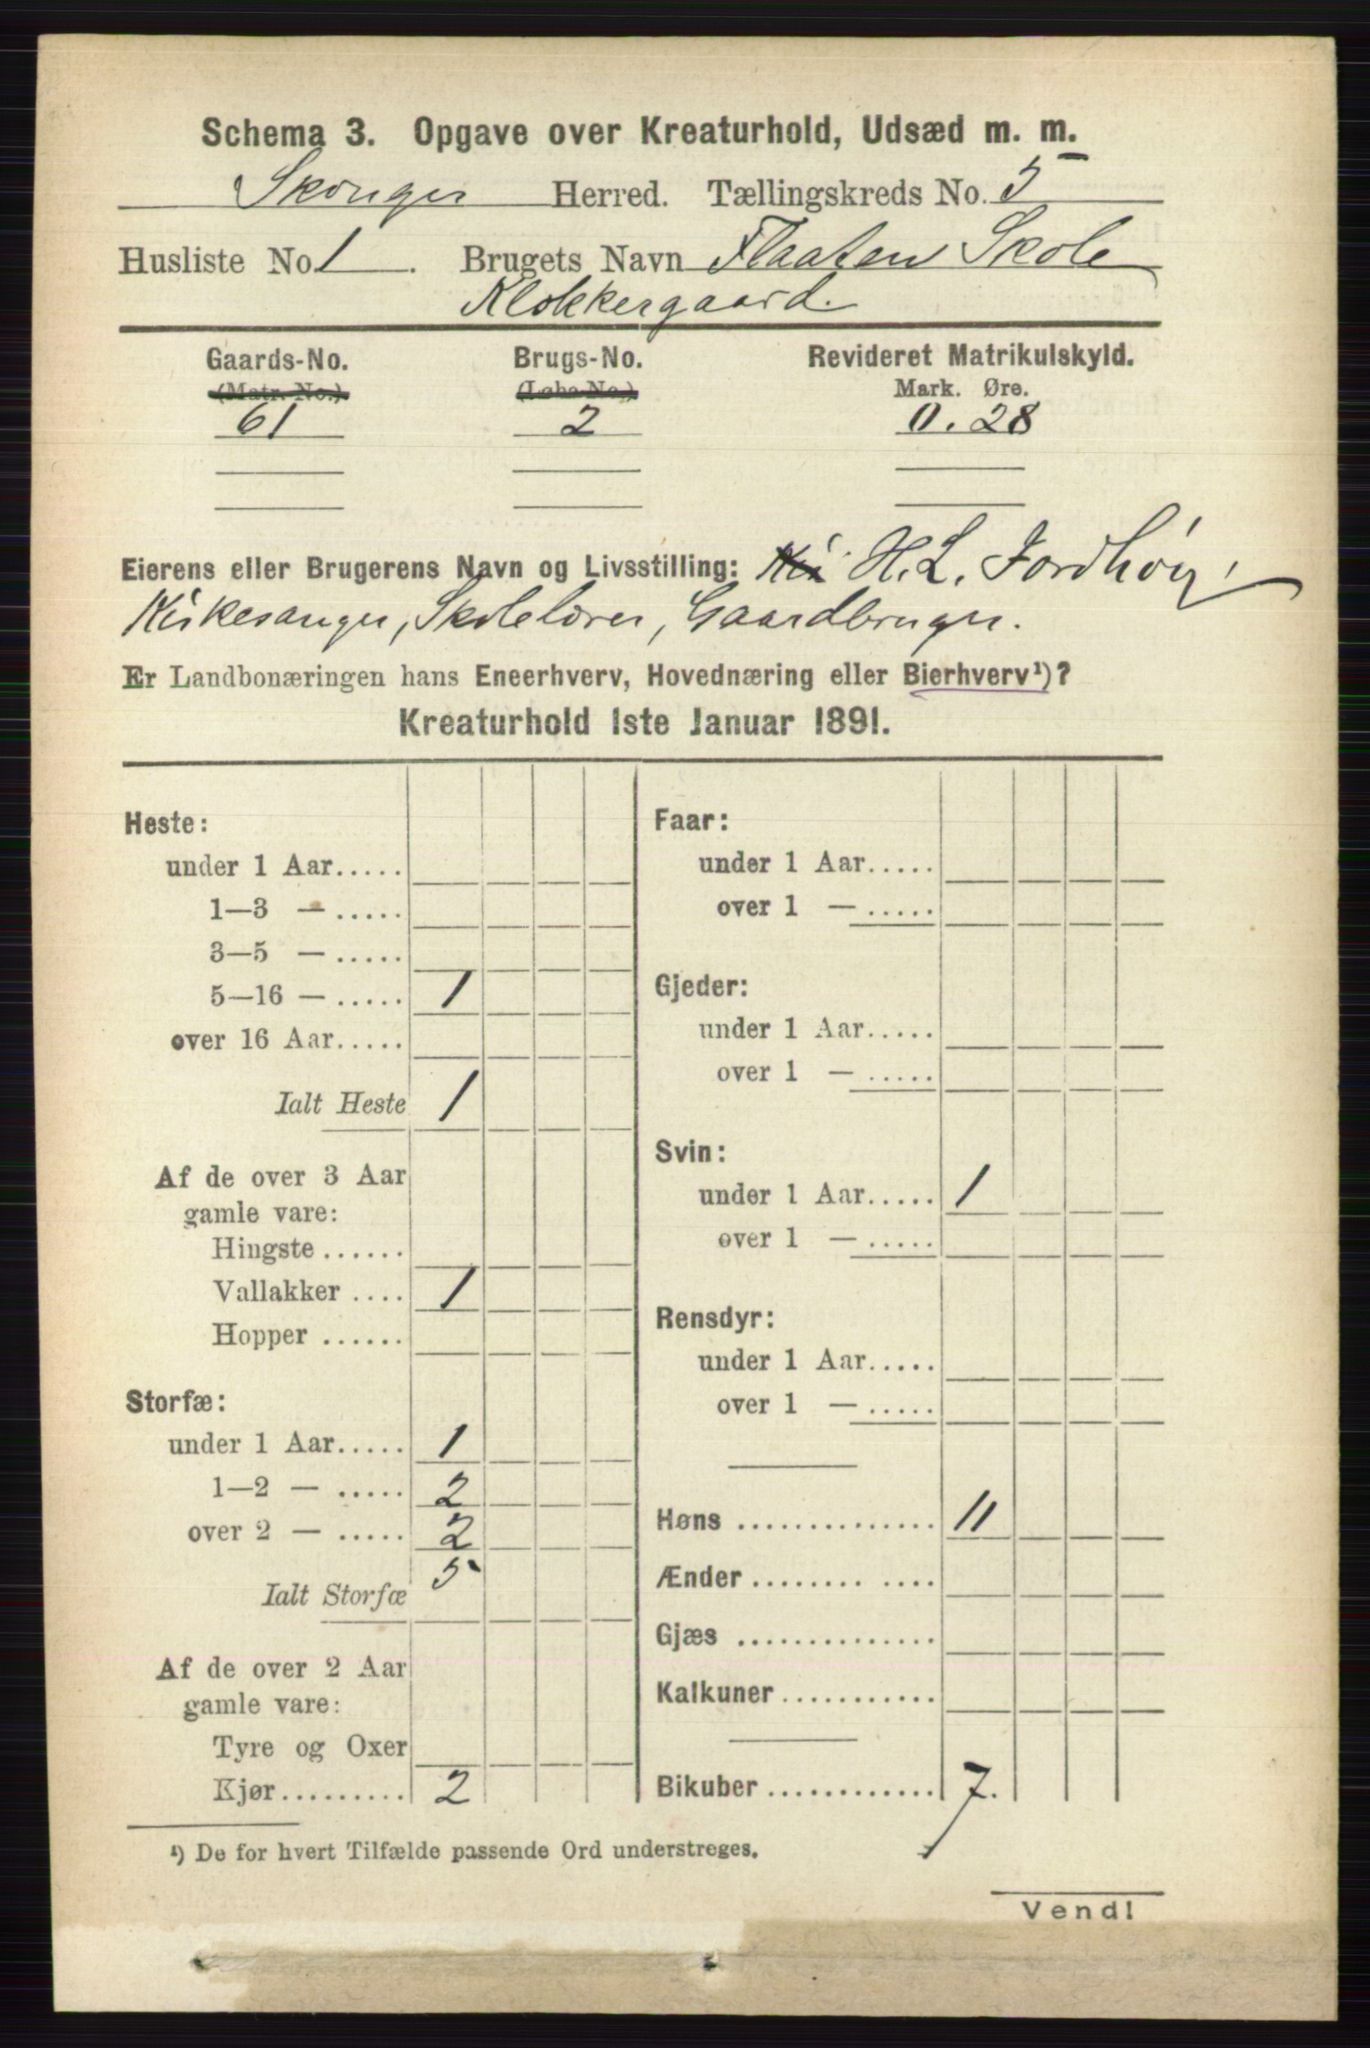 Schema 3. Opgave over Kreaturhold, Udsæd m. m.
Skouger Herred. Tællingskreds No. 5
Husliste No 1. Brugets Navn Flaaten Skole
Klokkergaard.
Gaards-No. Brugs-No. Revideret Matrikulskyld.
(Matr. No.) (Løbe No.) Mark. Øre.
61 2 0.28
Eierens eller Brugerens Navn og Livsstilling: H. L. Jordhøy,
Kirkesanger, Skolelærer, Gaardbruger.
Er Landbonæringen hans Eneerhverv, Hovednæring eller Bierhverv¹)?
Kreaturhold 1ste Januar 1891.
Heste:
under 1 Aar.....
1—3 — .....
3—5 — .....
5—16 — ..... 1
over 16 Aar.....
Ialt Heste 1
Af de over 3 Aar
gamle vare:
Hingste ......
Vallakker .... 1
Hopper ......
Storfæ:
under 1 Aar..... 1
1—2 — ..... 2
over 2 — ..... 2
Ialt Storfæ 5
Af de over 2 Aar
gamle vare:
Tyre og Oxer
Kjør......... 2
Faar:
under 1 Aar.....
over 1 — .....
Gjeder:
under 1 Aar.....
over 1 — .....
Svin:
under 1 Aar..... 1
over 1 — .....
Rensdyr:
under 1 Aar.....
over 1 — .....
Høns .............. 11
Ænder........ ....
Gjæs ..............
Kalkuner...........
Bikuber ............ 7.
¹) De for hvert Tilfælde passende Ord understreges.
Vend!